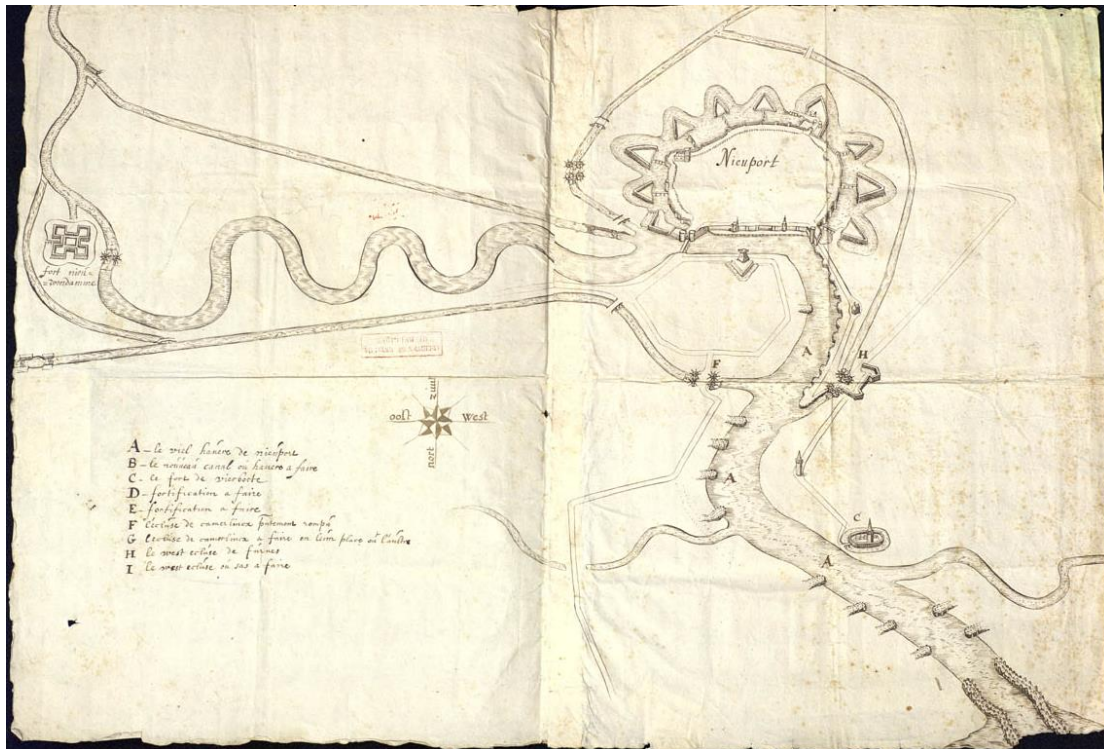 Nieuport
fort nieu
wendamme
A
F
H
zuit
oost
west
nort
A
C
A
A - le viel havere de nieuport
B - le nouveau canal ou havere a faire
C - le fort de viervoote
D - fortification a faire
E - fortification a faire
F l'escluse de camerlincx rompu
G l'escluse de camerlincx a faire en leur place ou l'aultre
H le west ecluse de furnes
I le west ecluse ou sas a faire